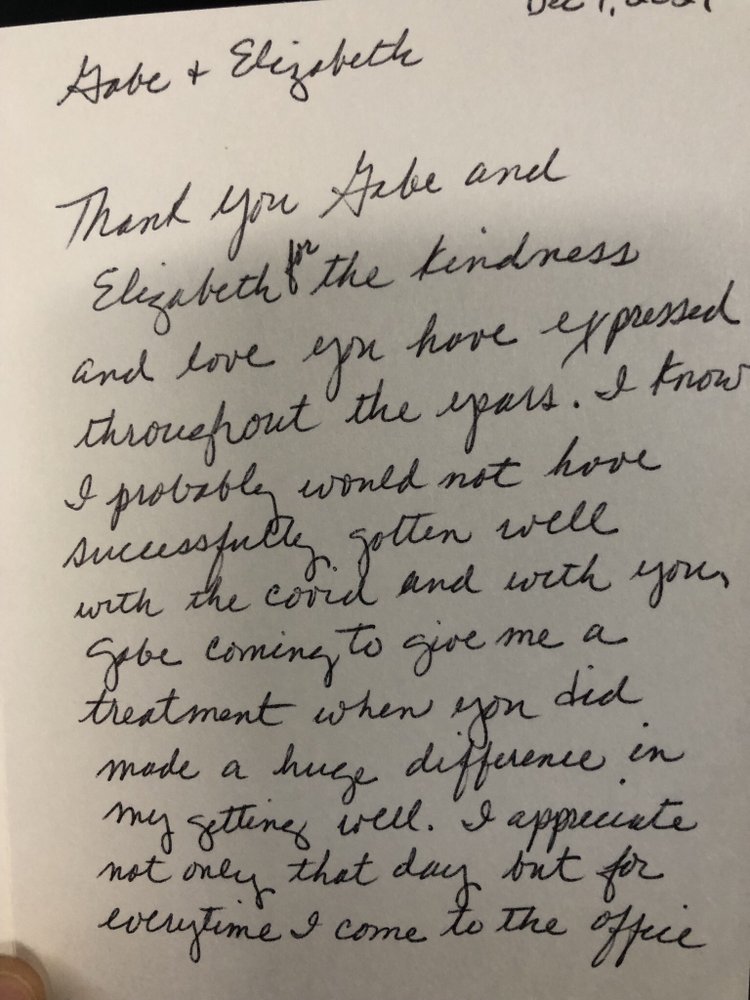 Dec 1, 2021
Gabe + Elizabeth
Thank you Gabe and
Elizabeth for the kindness
and love you have expressed
throughout the years. I know
I probably would not have
successfully gotten well
with the covid and with you,
Gabe coming to give me a
treatment when you did
made a huge difference in
my getting well. I appreciate
not only that day but for
everytime I come to the office